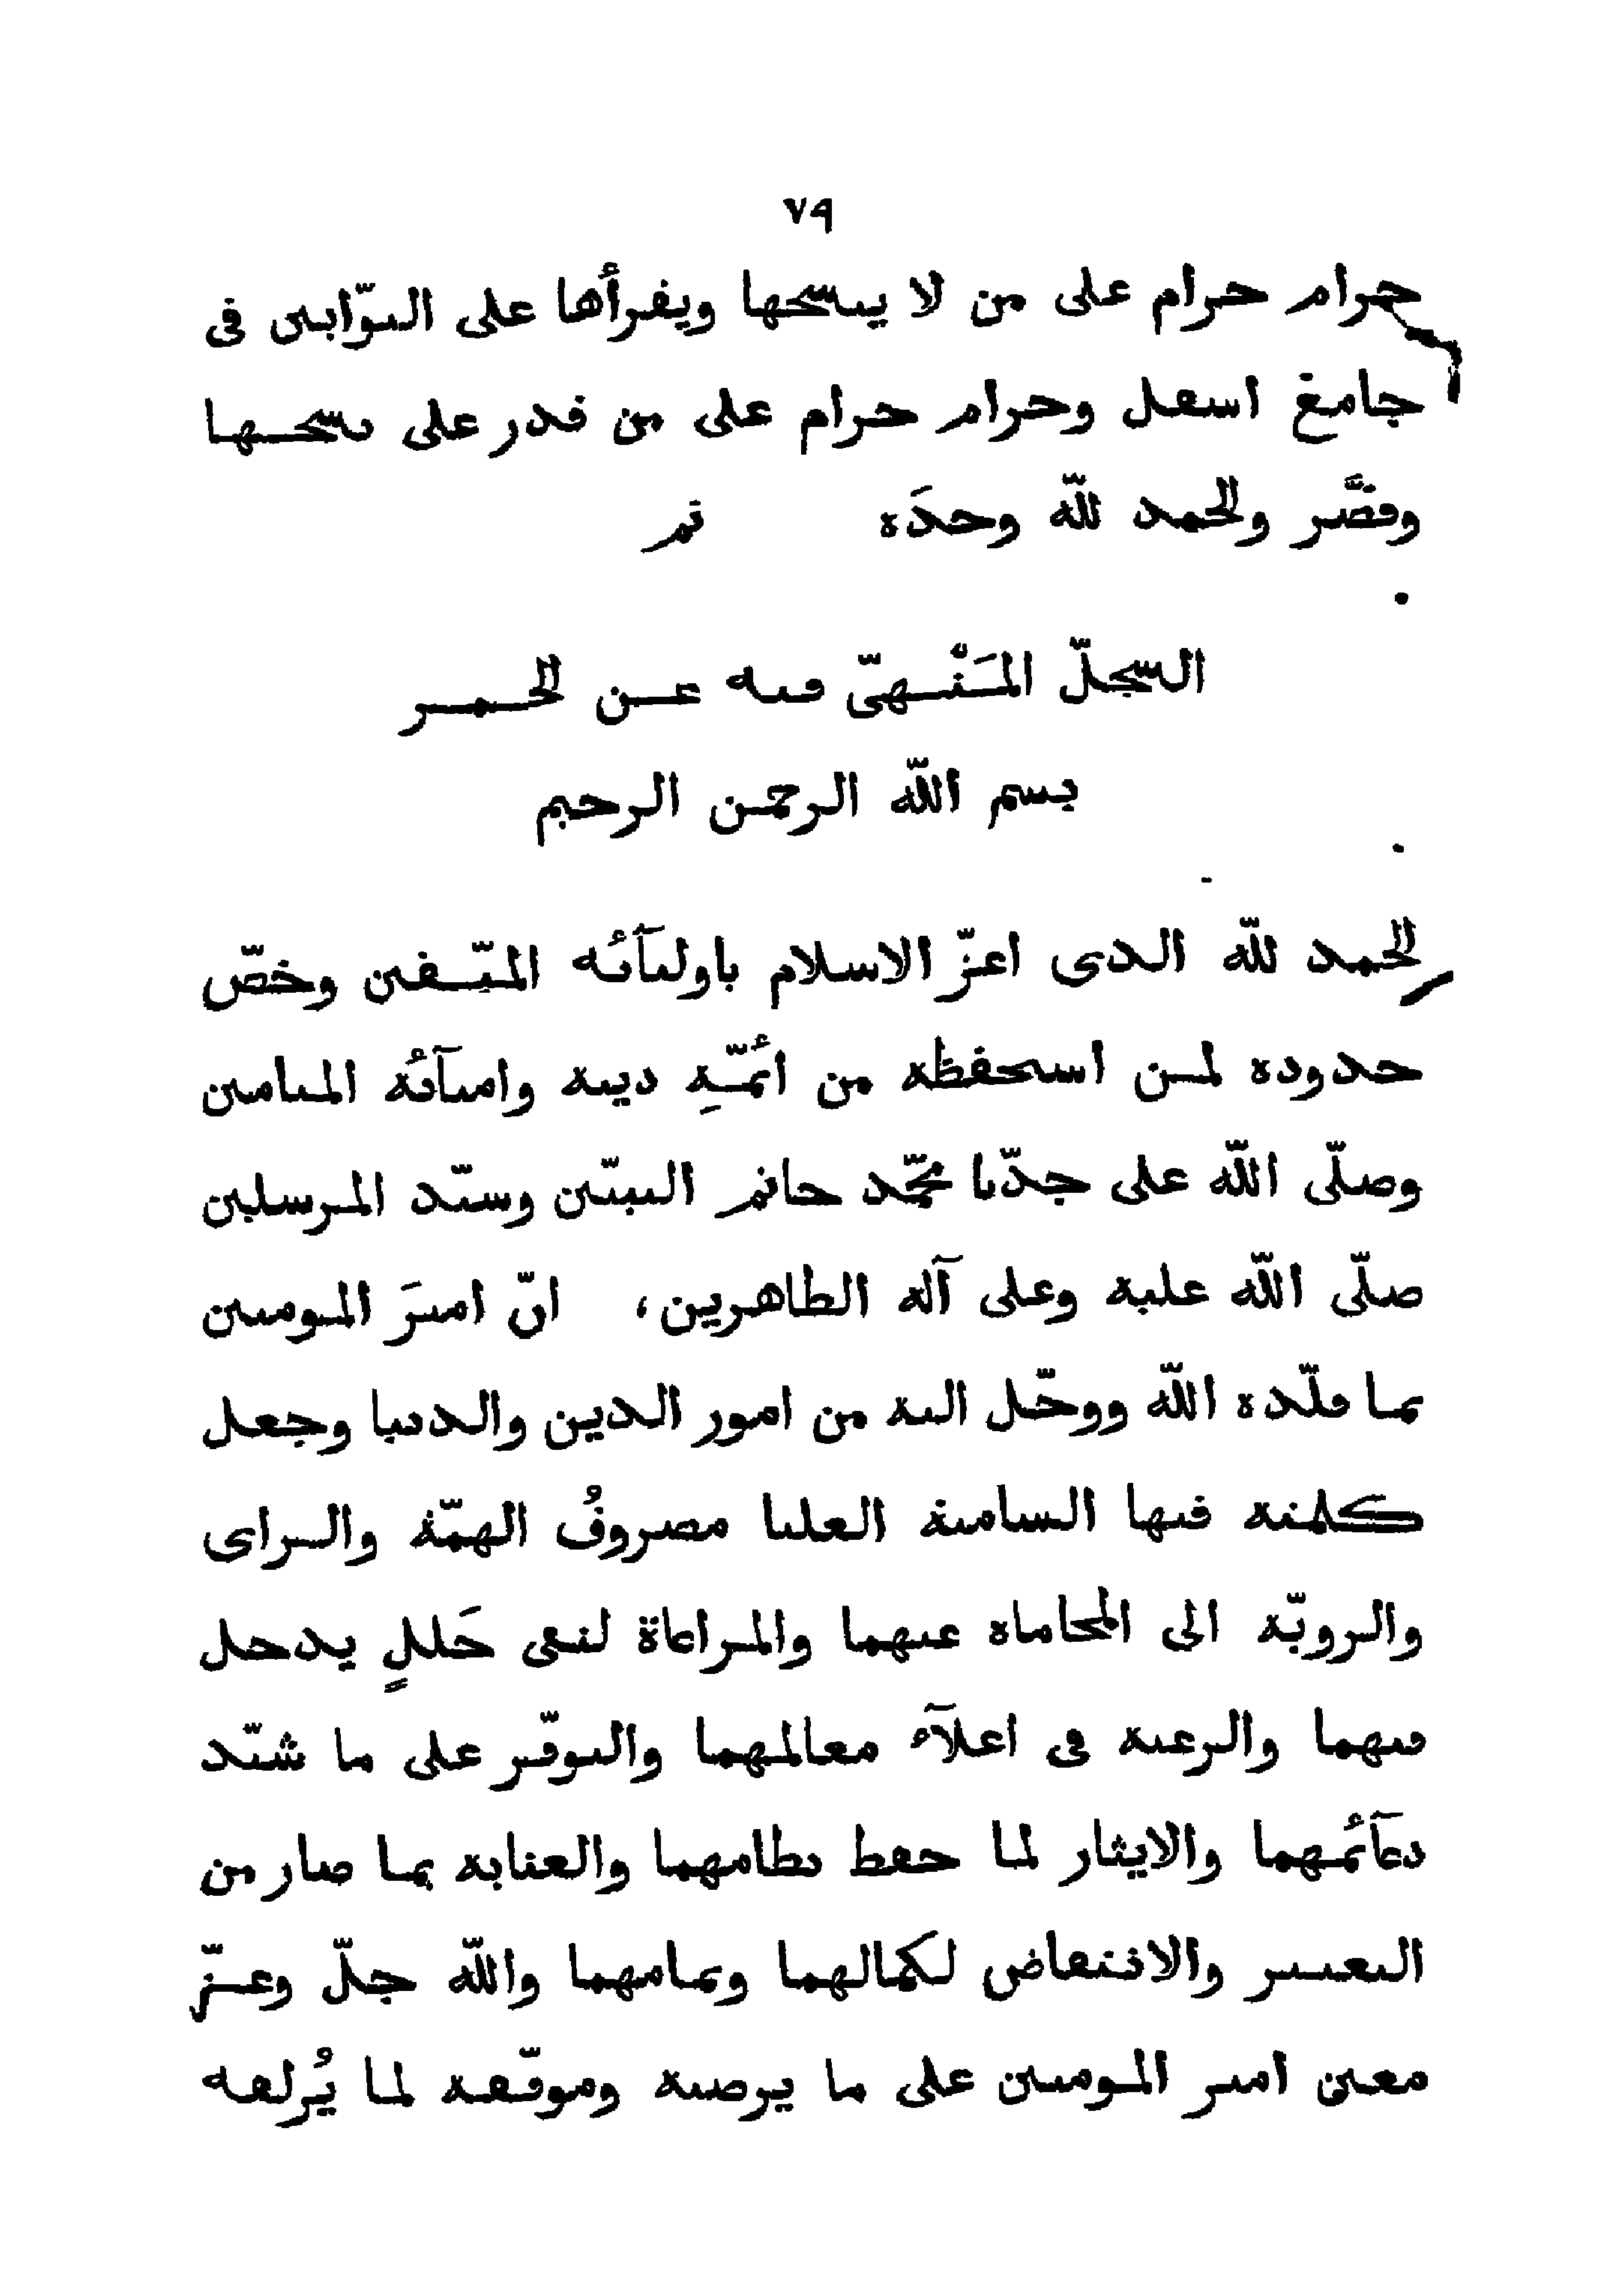 ٧٩
حرام حرام على من لا ينسخها ويقرأها على التوّابين فى
جامع اسفل وحرام حرام على من قدر على نسخها
وقصَّر والحمد للّه وحدَه تم
السجلّ المَنْهىّ فيه عن الخمر
بسم اللّه الرحمن الرحيم
الحمد للّه الذى اعزّ الاسلام باوليآئه المتّقين وخصّ
حدوده لمن استحفظه من ائمّةِ دينه وامنآئه الميامين
وصلّى اللّه على جدّنا محمّد خاتم النبيّين وسيّد المرسلين
صلّى اللّه عليه وعلى آله الطاهرين، انّ اميرَ المومنين
بما قلّده اللّه ووكّل اليه من امور الدين والدنيا وجعل
كلمته فيها السامية العليا مصروفُ الهمّة والراى
والرويّة الى المحاماه عنهما والمراعاة لنفى خَللٍ يدخل
فيهما والرغبة فى اعلآء معالمهما والتوفّر على ما شيّد
دعآئمهما والايثار لما حفظ نظامهما والعناية بما صار من
التغيير والانتقاض لكمالهما وتمامهما واللّه جلّ وعزّ
معين امير المومنين على ما يرضيه وموفّقه لما يُزلفه